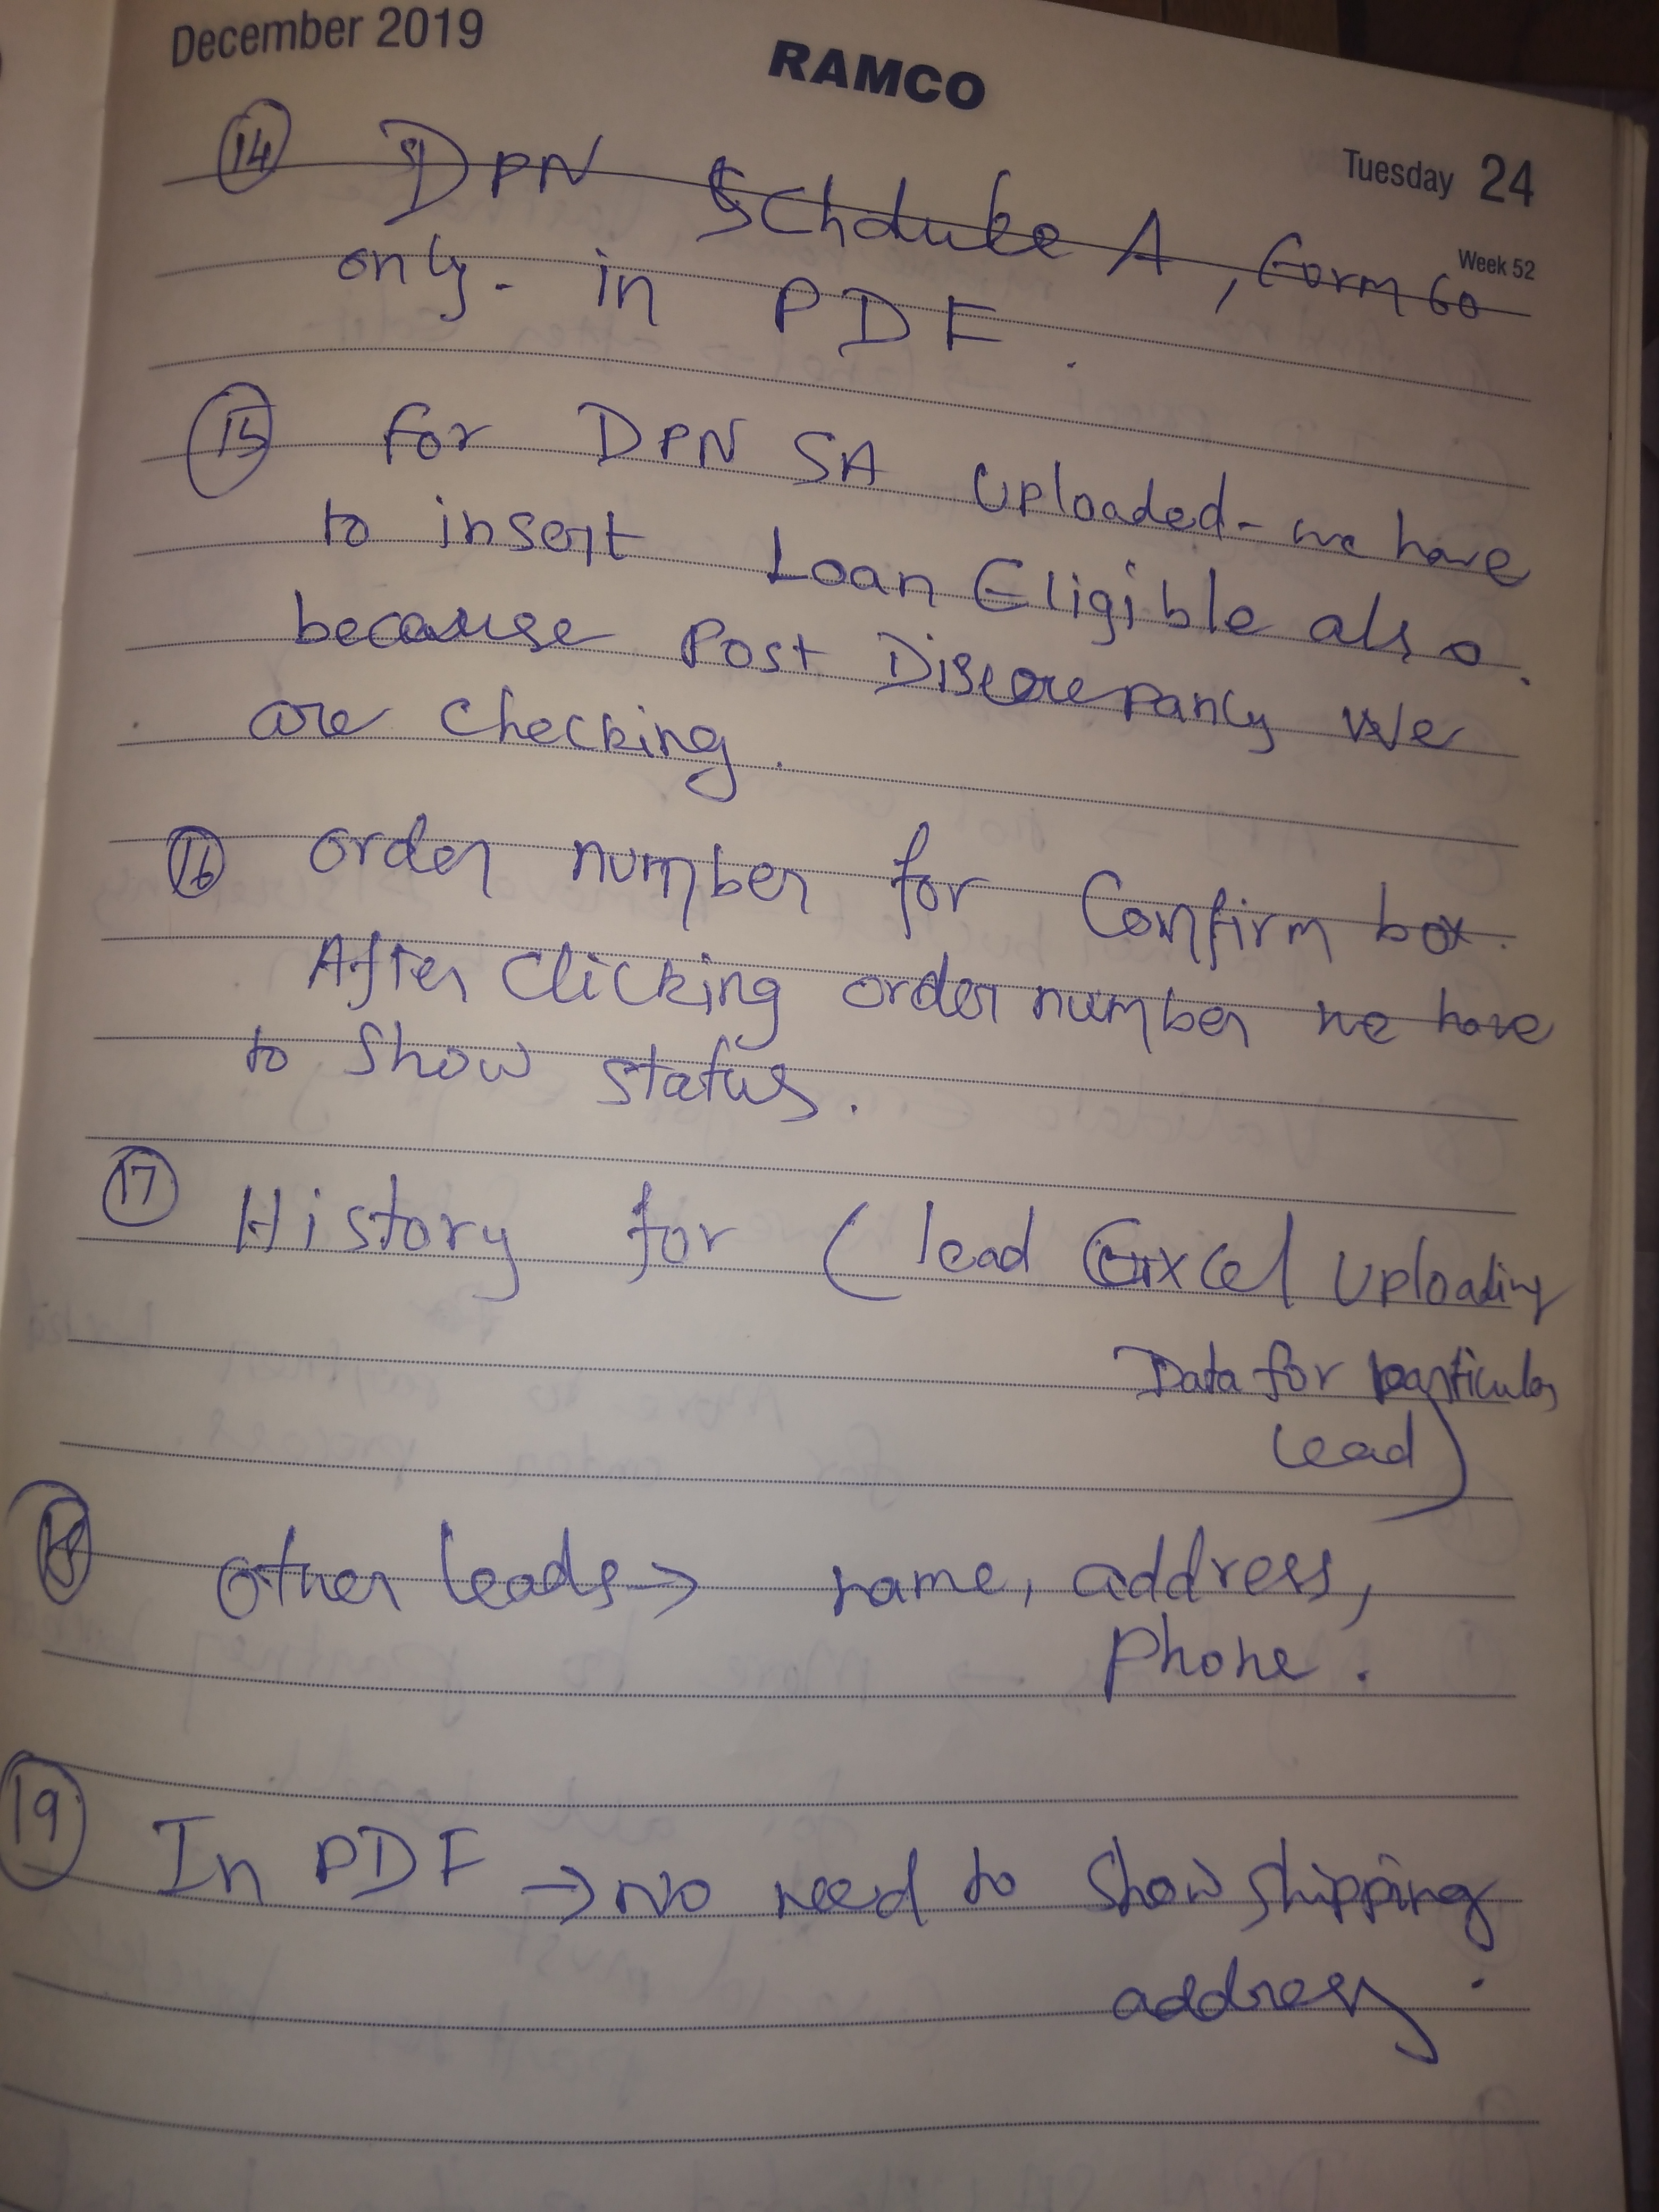 December 2019
RAMCO
Tuesday 24
Week 52
14 DPN Schdule A, Form 60
only. in PDF.
15 for DPN SA uploaded - we have
to insert Loan Eligible also.
because Post Discrepancy we
are checking.
16 order number for Confirm box.
After clicking order number we have
to show status.
17 History for (lead Excel uploading
Data for particular
lead)
18 other leads → name, address,
phone.
19 In PDF → No need to show shipping
address.